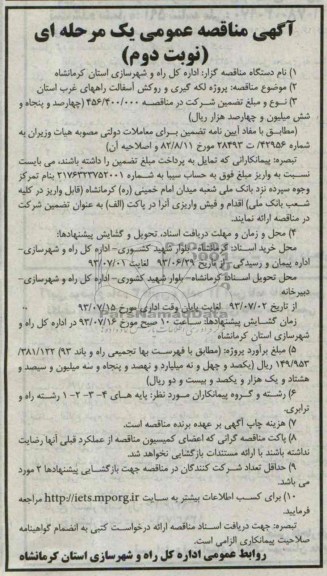 آگهی مناقصه عمومی یک مرحله ای
(نوبت دوم)
۱) نام دستگاه مناقصه گزار: اداره کل راه و شهرسازی استان کرمانشاه
۲) موضوع مناقصه: پروژه لکه گیری و روکش آسفالت راههای غرب استان
۳) نوع و مبلغ تضمین شرکت در مناقصه ۴۵۶/۴۰۰/۰۰۰ (چهارصد و پنجاه و
شش میلیون و چهارصد هزار ریال)
(مطابق با مفاد آیین نامه تضمین برای معاملات دولتی مصوبه هیات وزیران به
شماره ۴۲۹۵۶/ ت ۲۸۴۹۳ مورخ ۸۲/۸/۱۱ و اصلاحیه آن)
تبصره: پیمانکارانی که تمایل به پرداخت مبلغ تضمین را داشته باشند، می بایست
نسبت به واریز مبلغ فوق به حساب سیبا به شماره ۲۱۷۶۳۲۲۷۵۲۰۰۱ بنام تمرکز
وجوه سپرده نزد بانک ملی شعبه میدان امام خمینی (ره) کرمانشاه (قابل واریز در کلیه
شعب بانک ملی) اقدام و فیش واریزی آنرا در پاکت (الف) به عنوان تضمین شرکت
در مناقصه ارائه نمایند.
۴) محل و زمان و مهلت دریافت اسناد، تحویل و گشایش پیشنهادها:
محل خرید اسناد: کرمانشاه- بلوار شهید کشوری- اداره کل راه و شهرسازی-
اداره پیمان و رسیدگی از تاریخ ۹۳/۰۶/۲۹ لغایت ۹۳/۰۷/۰۱
محل تحویل اسناد: کرمانشاه- بلوار شهید کشوری- اداره کل راه و شهرسازی-
دبیرخانه
از تاریخ ۹۳/۰۷/۰۲ لغایت پایان وقت اداری مورخ ۹۳/۰۷/۱۵
زمان گشایش پیشنهادها: ساعت ۱۰ صبح مورخ ۹۳/۰۷/۱۶ در اداره کل راه و
شهرسازی استان کرمانشاه
۵) مبلغ برآورد پروژه: (مطابق با فهرست بها تجمیعی راه و باند ۹۳) ۳۸۱/۱۲۲/
۱۴۹/۹۵۳ ریال (یکصد و چهل و نه میلیارد و نهصد و پنجاه و سه میلیون و سیصد و
هشتاد و یک هزار و یکصد و بیست و دو ریال)
۶) رشته و گروه پیمانکاران مورد نظر: پایه های ۴- ۳- ۲- ۱ رشته راه و
ترابری.
۷) هزینه چاپ آگهی بر عهده برنده مناقصه است.
۸) پاکت مناقصه گرانی که اعضای کمیسیون مناقصه از عملکرد قبلی آنها رضایت
نداشته باشند با ارائه مستندات بازگشایی نخواهد شد.
۹) حداقل تعداد شرکت کنندگان در مناقصه جهت بازگشایی پیشنهادها ۲ مورد
می باشد.
۱۰) برای کسب اطلاعات بیشتر به سایت http://iets.mporg.ir مراجعه
فرمایید.
تبصره: جهت دریافت اسناد مناقصه ارائه درخواست کتبی به انضمام گواهینامه
صلاحیت پیمانکاری الزامی است.
روابط عمومی اداره کل راه و شهرسازی استان کرمانشاه